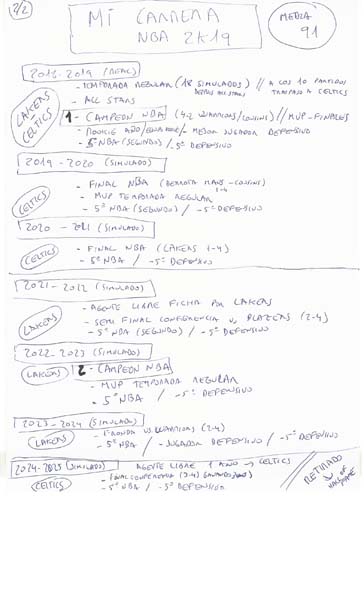 1/2
MI CARRERA
NBA 2K19
MEDIA
91
LAKERS
CELTICS
- TEMPORADA REGULAR (18 SIMULADOS) // A LOS 10 PARTIDOS
TRASPASO A CELTICS
- ALL STARS
1 - CAMPEON NBA (4-2 WARRIORS/COUSINS) // MVP-FINALES
- ROOKIE AÑO / / MEJOR JUGADOR DEFENSIVO
- 5º NBA (SEGUNDO) / 5º DEFENSIVO
2019-2020 (SIMULADO)
CELTICS
- FINAL NBA (DERROTA - COUSINS)
1-4
- MVP TEMPORADA REGULAR
- 5º NBA (SEGUNDO) / - 5º DEFENSIVO
2020-2021 (SIMULADO)
CELTICS
- FINAL NBA (LAKERS 1-4)
- 5º NBA (SEGUNDO) / - 5º DEFENSIVO
2021-2022 (SIMULADO)
LAKERS
- AGENTE LIBRE FICHA POR LAKERS
- SEMI FINAL CONFERENCIA (2-4)
- 5º NBA (SEGUNDO) / - 5º DEFENSIVO
2022-2023 (SIMULADO)
LAKERS
2 - CAMPEON NBA
- MVP TEMPORADA REGULAR
- 5º NBA / - 5º DEFENSIVO
2023-2024 (SIMULADO)
LAKERS
- 1ª RONDA VS WARRIORS (2-4)
- 5º NBA / - JUGADOR DEFENSIVO / - 5º DEFENSIVO
2024-2025 (SIMULADO)
AGENTE LIBRE 1 AÑO → CELTICS
CELTICS
- FINAL CONFERENCIA (3-4)
- 5º NBA / - 5º DEFENSIVO
RETIRADO
HALL OF FAME